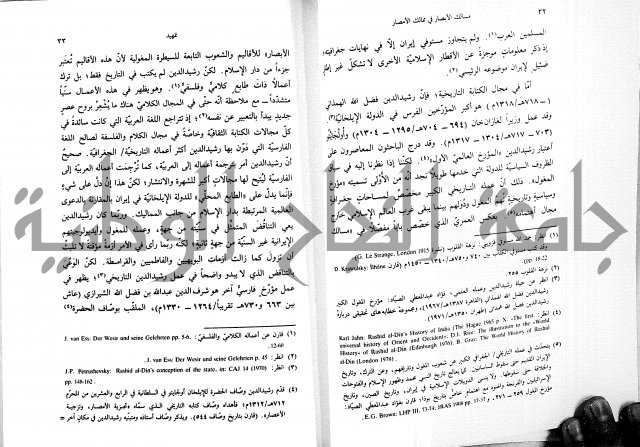 ٣٢
مسالك الأبصار في ممالك الأمصار
المسلمين العرب(١). ولم يتجاوز مستوفي إيران إلّا في نهايات جغرافيته؛
إذ ذكر معلومات موجزة عن الأقطار الإسلامية الأخرى لا تشكّل غير إطار
ضئيل لإيران موضوعه الرئيسي(٢).
أمّا في مجال الكتابة التاريخية؛ فإنّ رشيدالدين فضل الله الهمذاني
(ــ ٧١٨هـ/١٣١٨م) هو أكبر المؤرخين الفرس في الدولة الإيلخانية(٣).
وقد عمل وزيراً لغازان‌خان (٦٩٤ ــ ٧٠٤هـ/١٢٩٥ ــ ١٣٠٤م) وأولجايتو
(٧٠٣ ــ ٧١٧هـ/١٣٠٤ ــ ١٣١٧م). وقد درج الباحثون المعاصرون على
اعتبار رشيدالدين «المؤرخ العالمي الأول». لكننا إذا نظرنا إليه في سياق
الظروف السياسية للدولة التي خدمها طويلاً نجد أنه من الأَوْلى تسميته «مؤرخ
المغول». ذلك أنّ عمله التاريخي الكبير مخصّص لمساحات جغرافية
وسياسية وتاريخية تهمّ المغول ودولهم بينما بقي غرب العالم الإسلامي خارج
مجال اهتمامه(٤). بعكس العمري الذي خصّص بابا مفصّلاً في «مسالك
(G. Le Strange, London 1915
pp. 18-22
(٢) نزهة القلوب ٢٥٥.
(٣) قارن عن حياة رشيدالدين وعمله العلمي؛ فؤاد عبدالمعطي الصيّاد: مؤرخ المغول الكبير
رشيدالدين فضل الله الهمذاني (القاهرة ١٣٨٧هـ/١٩٦٧م)، ومجموعه خطابه‌هاى تحقيقى دربارهٔ
رشيدالدين فضل الله همدانى (طهران ١٣٥٠هـ/١٩٧١م).
Karl Jahn: Rashid al-Din's History of India (The Hague 1965 p. X: «The first
universal history of Orient and Occident»; D.T. Rice: The illustration to the «World
History» of Rashid al-Din (Edinburgh 1976); B. Gray: The World History of Rashid
al-Din (London 1978) .
E.G. Brown: LHP III, 73-74; JRAS 1908 pp. 17-37
تمهيد
٣٣
الأبصار» للأقاليم والشعوب التابعة للسيطرة المغولية لأنّ هذه الأقاليم تُعتبر
جزءاً من دار الإسلام. لكنّ رشيدالدين لم يكتب في التاريخ فقط؛ بل ترك
أعمالاً ذات طابع كلاميّ وفلسفيّ(١). وهو يظهر في هذه الأعمال سنّياً
متشدداً ــ مع ملاحظة أنه حتى في المجال الكلاميّ هناك ما يُشْعِرُ بروح عصرٍ
جديدٍ يبدأ بالتعبير عن نفسه(٢)؛ إذ تتراجع اللغة العربية التي كانت سائدةً في
كلّ مجالات الكتابة الثقافية وخاصةً في مجال الكلام والفلسفة لصالح اللغة
الفارسية التي دوّن بها رشيدالدين أكثر أعماله التاريخية/الجغرافية. صحيحٌ
أنّ رشيدالدين أمر بترجمة أعماله إلى العربية، كما تُرجمت أعماله العربية إلى
الفارسية ليُتيح لها مجالات أكبر للشهرة والانتشار؛ لكنّ هذا إنْ دلّ على شيءٍ؛
فإنما يدلّ على «الطابع المحلّي» للدولة الإيلخانية في إيران بالمقارنة بالدعوى
العالمية المرتبطة بدار الإسلام من جانب المماليك. وربما كان رشيدالدين
يعي التناقض المتمثّل في سنّيته من جهةٍ، وعمله للمغول وأيديولوجيتهم
الإيرانية غير السنّية من جهةٍ ثانيةٍ؛ لكنّه ربما رأى في الأمر أزمةً مؤقتةً لا تلبثُ
أن تزول كما زالت أزمات البويهيين والفاطميين والقرامطة. لكنّ الوعْيَ
بالتناقض الذي لا يبدو واضحاً في عمل رشيدالدين التاريخي(٣)؛ يظهر في
عمل مؤرّخٍ فارسيٍ آخر هو شرف الدين عبدالله بن فضل الله الشيرازي (عاش
بين ٦٦٣ و٧٣٠هـ تقريباً/١٢٦٤ ــ ١٣٣٠م)، الملقّب بوصّاف الحضرة(٤)
(١) قارن عن أعماله الكلاميّ والفلسفيّ: J. van Ess: Der Wesir und seine Gelehrten pp. 5-6,
12-60 .
(٢) انظر: J. van Ess: Der Wesir und seine Gelehrten p. 45 .
(٣) انظر: J.P. Petrushevsky: Rashid al-Din's conception of the state, in: CAJ 14 (1970)
pp. 148-162 .
(٤) قدّم رشيدالدين وصّاف الحضرة للإيلخان أولجايتو في السلطانية في الرابع والعشرين من المحرّم
٧١٢هـ/١٣١٢م، فأهداه وصّاف كتابه التاريخي الذي سمّاه «تجزية الأمصار، وتزجية
الأعصار». (قارن بتاريخ وصّاف ٥٤٤). ويذكر وصّاف أستاذه ومتبنّيه رشيدالدين في مكانٍ آخر =
جامعة